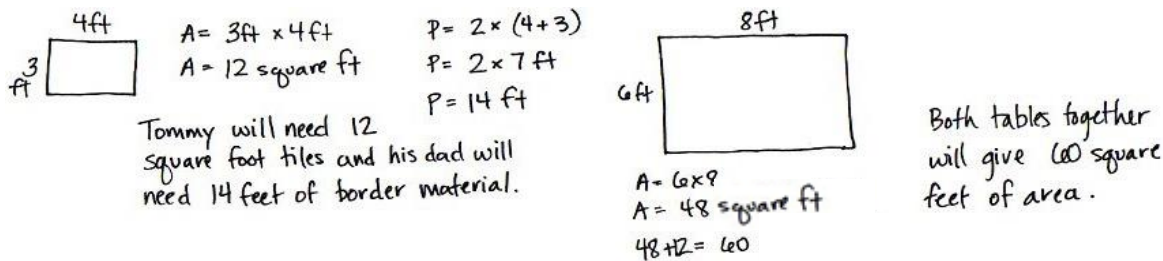 4ft
3
ft
A= 3ft × 4ft
A= 12 square ft
P= 2 × (4+3)
P= 2 × 7 ft
P= 14 ft
Tommy will need 12
square foot tiles and his dad will
need 14 feet of border material.
8ft
6ft
A= 6×8
A= 48 square ft
48+12= 60
Both tables together
will give 60 square
feet of area.